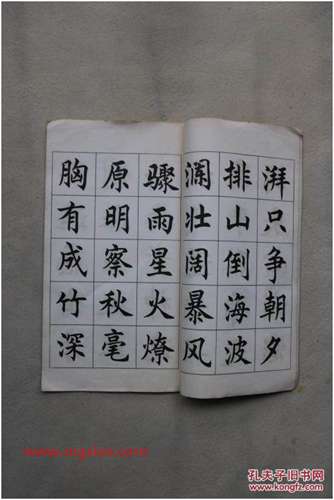 湃只争朝夕
排山倒海波
澜壮阔暴风
骤雨星火燎
原明察秋毫
胸有成竹深
孔夫子旧书网
kongfz.com